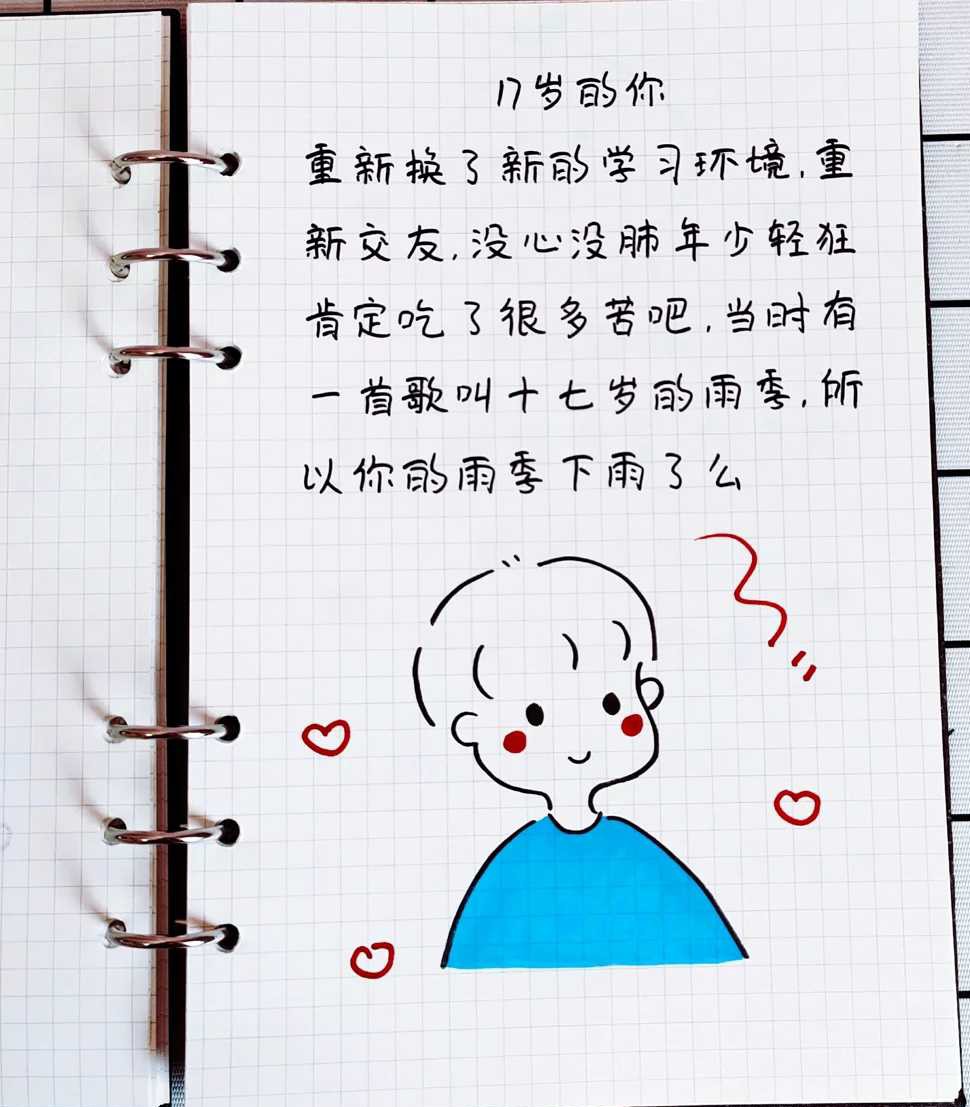 17岁的你
重新换了新的学习环境，重
新交友，没心没肺年少轻狂
肯定吃了很多苦吧，当时有
一首歌叫十七岁的雨季，所
以你的雨季下雨了么